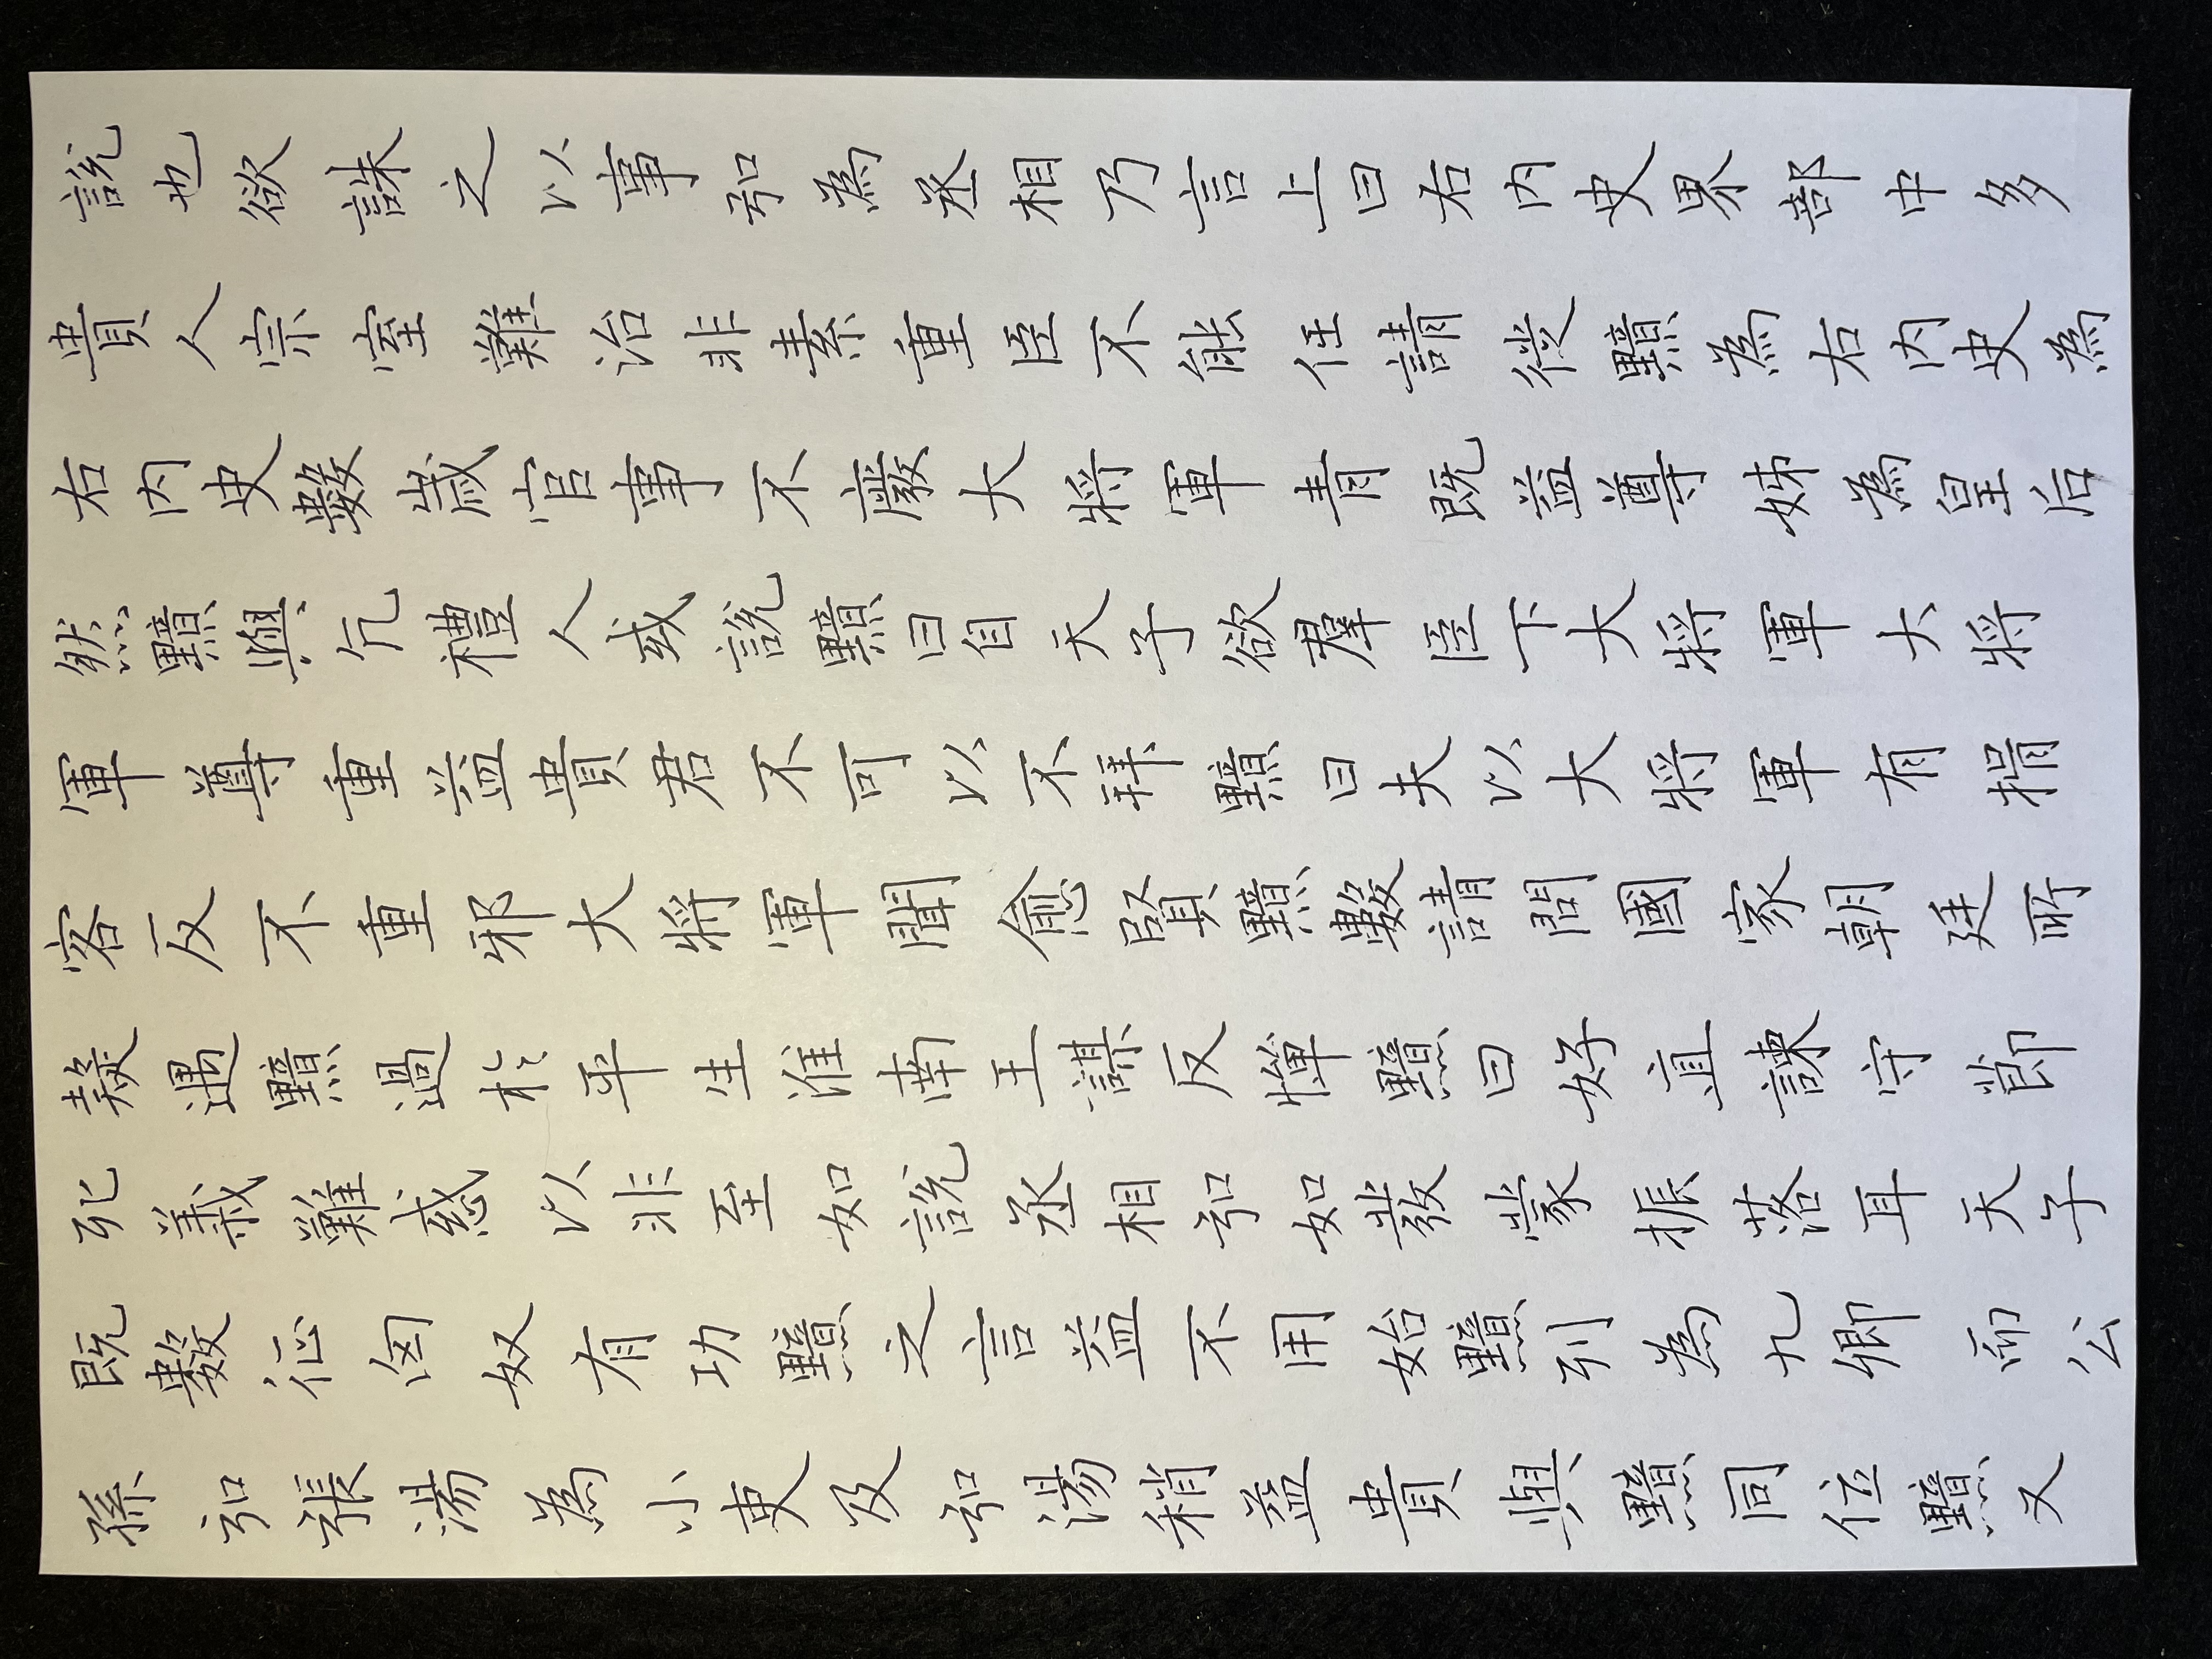 說也欲誅之以事弘為丞相乃言上曰右内史界部中多
貴人宗室難治非素重臣不能任請徙黯為右内史為
右内史數歲官事不廢大將軍青既益尊姊為皇后
然黯與亢禮人或說黯曰自天子欲羣臣下大將軍大將
軍尊重益貴君不可以不拜黯曰夫以大將軍有揖
客反不重邪大將軍聞愈賢黯數請問國家朝廷所
疑遇黯過於平生淮南王謀反憚黯曰好直諫守節
死義難惑以非至如說丞相弘如發蒙振落耳天子
既數征匈奴有功黯之言益不用始黯列為九卿而公
孫弘張湯為小吏及弘湯稍益貴與黯同位黯又